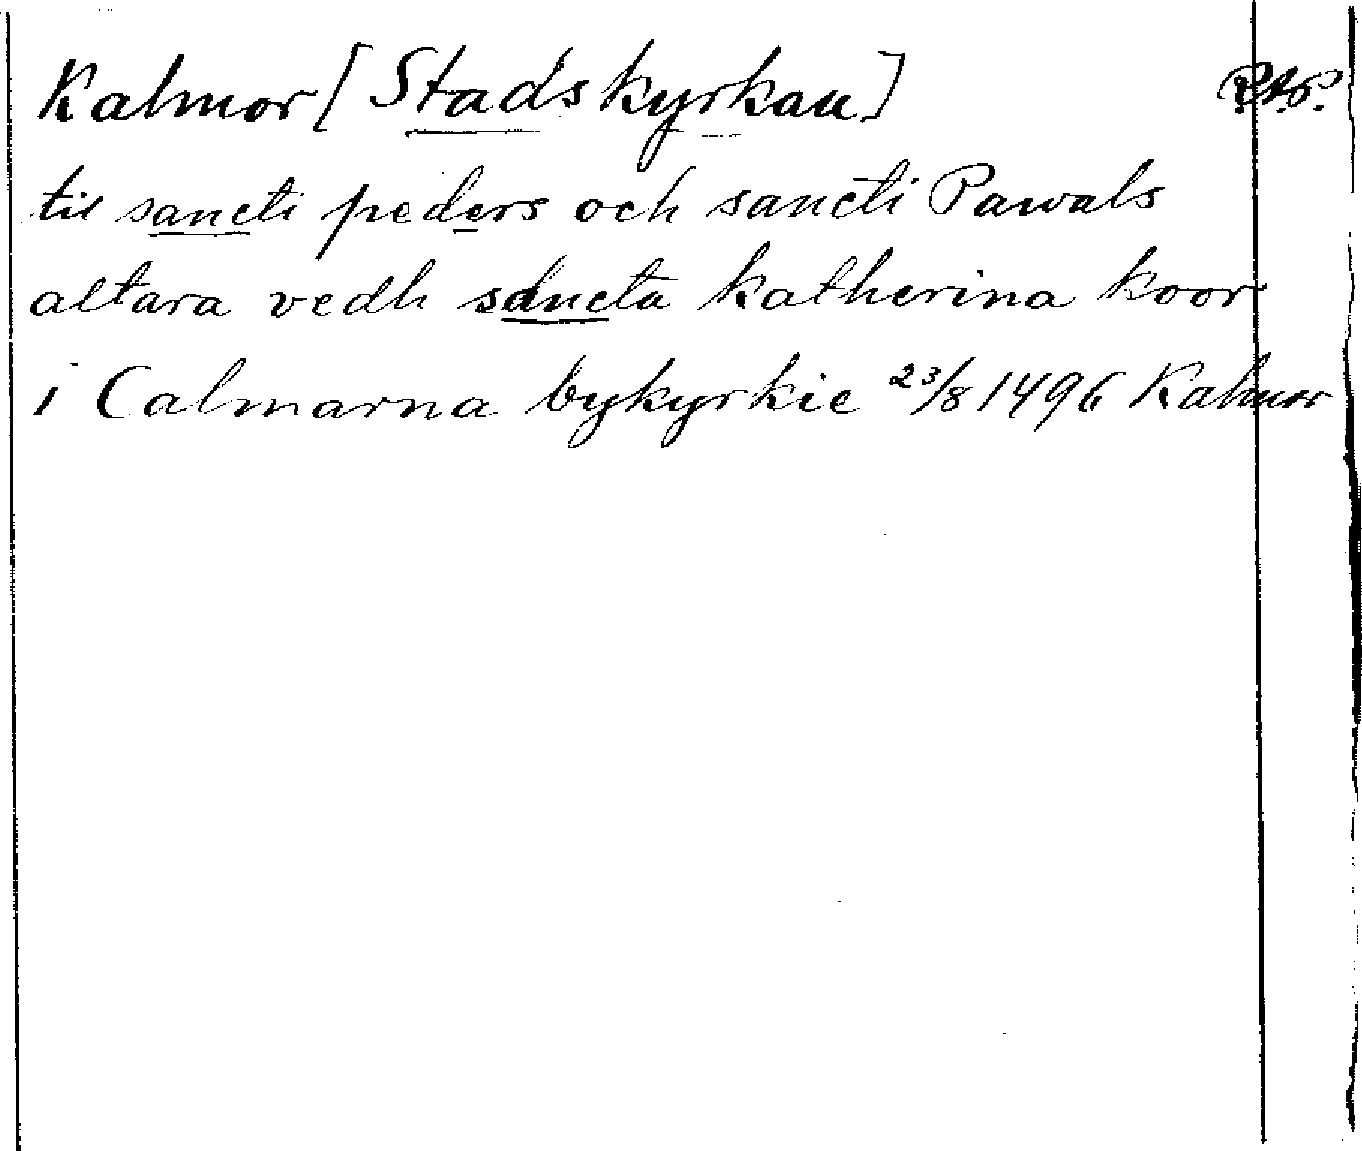 Kalmar [Stadskyrkan] RAP.
til sancti peders och sancti Pawals
altara vedh sancta katherina koor
i Calmarna bykyrkie 23/8 1496 Kalmar